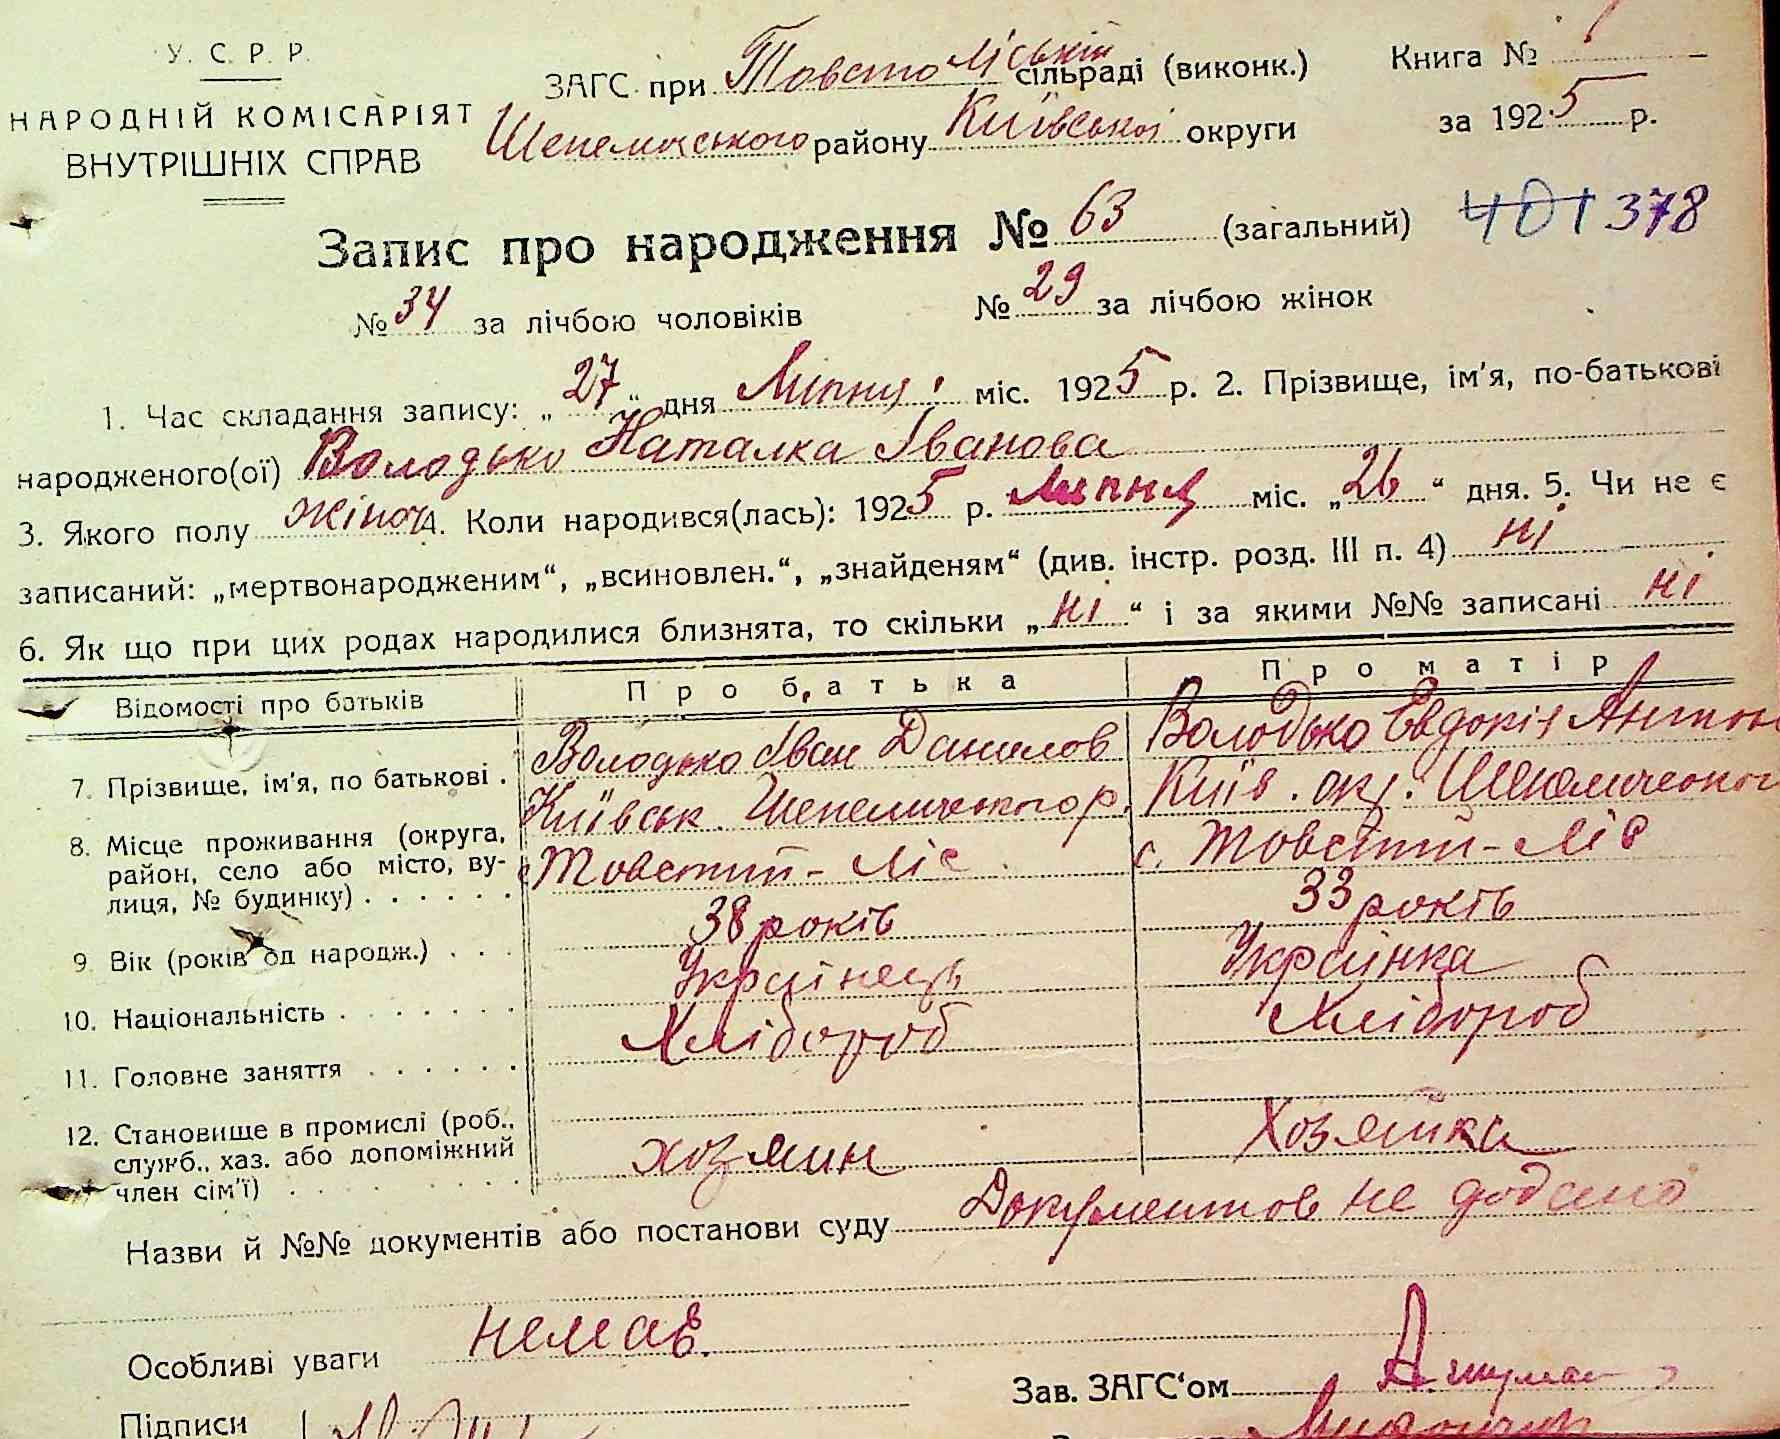 У. С. Р. Р.
НАРОДНІЙ КОМІСАРІЯТ
ВНУТРІШНІХ СПРАВ
ЗАГС при Товстоліській сільраді (виконк.)
Шепелицського району Київської округи
Книга №
за 1925 р.
Запис про народження № 63 (загальний) 401 378
№ 34 за лічбою чоловіків № 29 за лічбою жінок
1. Час складання запису: „27" дня Липня міс. 1925 р. 2. Прізвище, ім'я, по-батькові
народженого(ої) Володько Наталка Іванова
3. Якого полу жіноч 4. Коли народився(лась): 1925 р. Липня міс. „26" дня. 5. Чи не є
записаний: „мертвонародженим", „всиновлен.", „знайденям" (див. інстр. розд. III п. 4) ні
6. Як що при цих родах народилися близнята, то скільки „ні" і за якими №№ записані ні
Відомості про батьків Про батька Про матір
7. Прізвище, ім'я, по батькові . Володько Іван Данилов Володько Евдокія Антон
8. Місце проживання (округа, Київськ. Шепелического р. Київ. окр. Шепелическог
район, село або місто, ву- с. Товстий-Ліс с. Товстий-Ліс
лиця, № будинку) . . . . . .
9 Вік (років од народж.) . . . 38 років 33 років
10. Національність . . . . . . . Українець Українка
11. Головне заняття . . . . . . Хлібороб Хлібороб
12. Становище в промислі (роб.,
служб., хаз. або допоміжний хозяин Хозяйка
член сім'ї) . . . . . . . . .
Назви й №№ документів або постанови суду Документов не додано
Особливі уваги немає.
Зав. ЗАГС'ом
Підписи